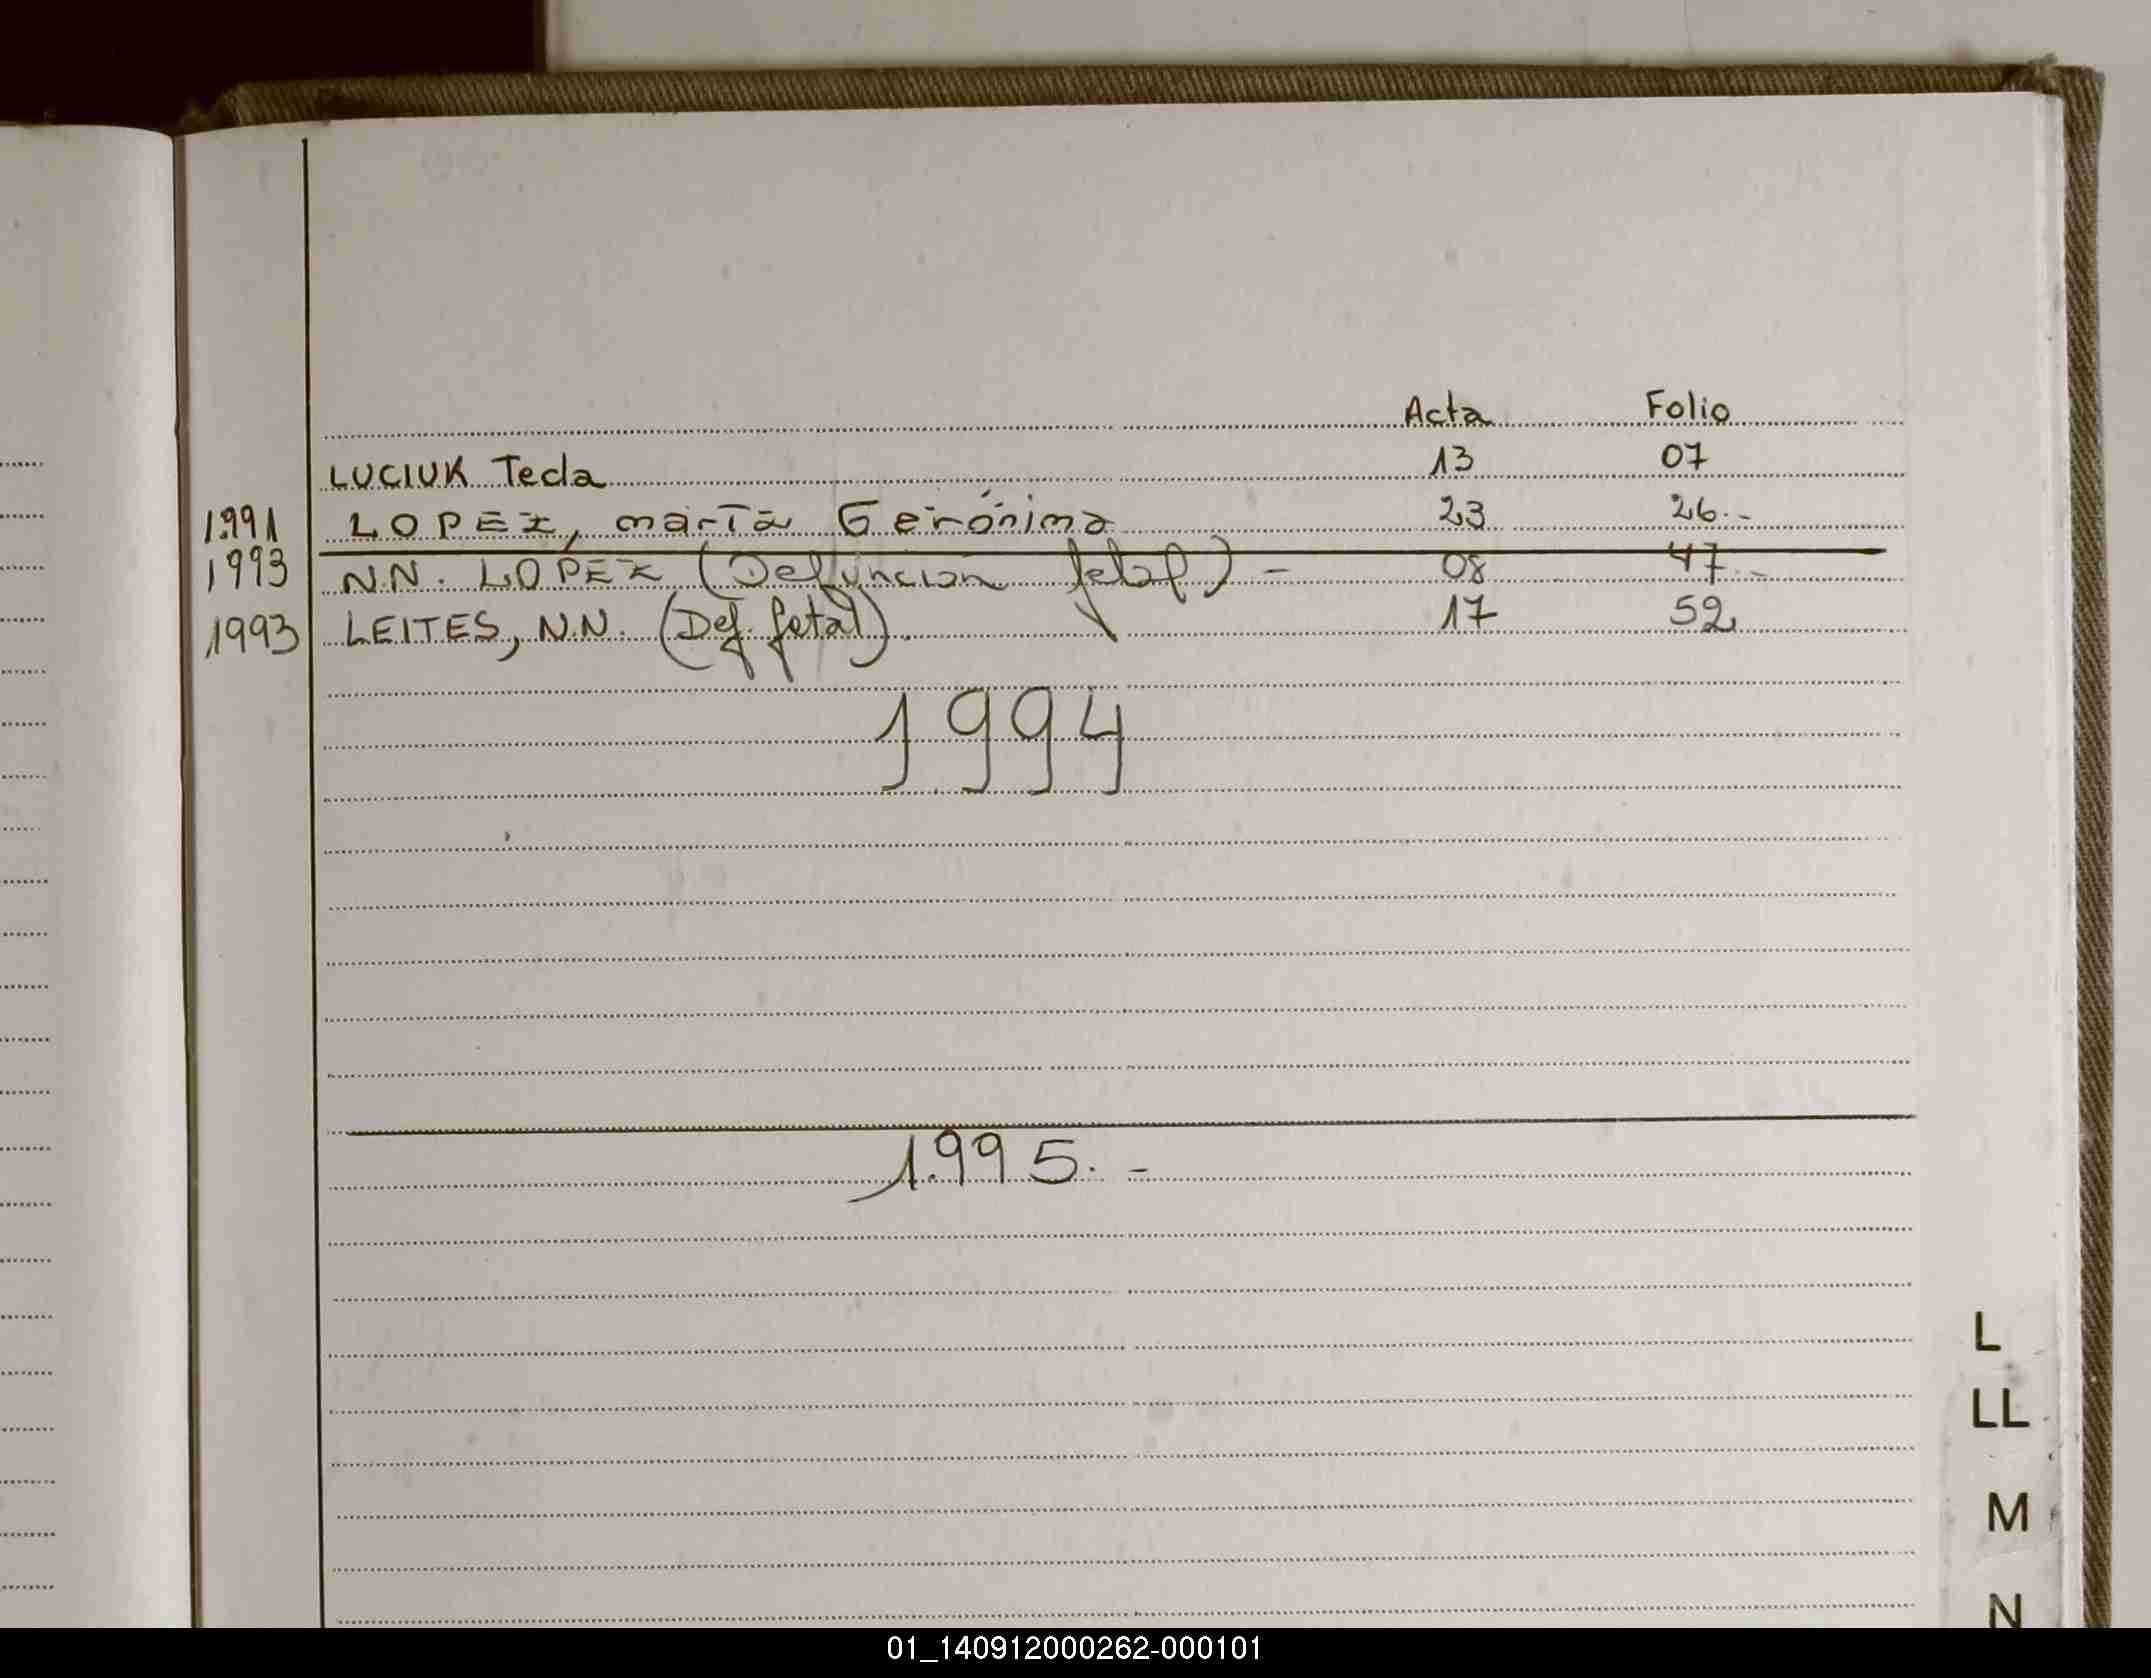 Acta Folio
LUCIUK Tecla 13 07
1.991 LOPEZ, maría Gerónima 23 26.-
1993 N.N. LOPEZ (Defuncion fetal) - 08 47.-
1993 LEITES, N.N. (Def. fetal). 17 52
1994
1.995.-
L
LL
M
N
01_140912000262-000101